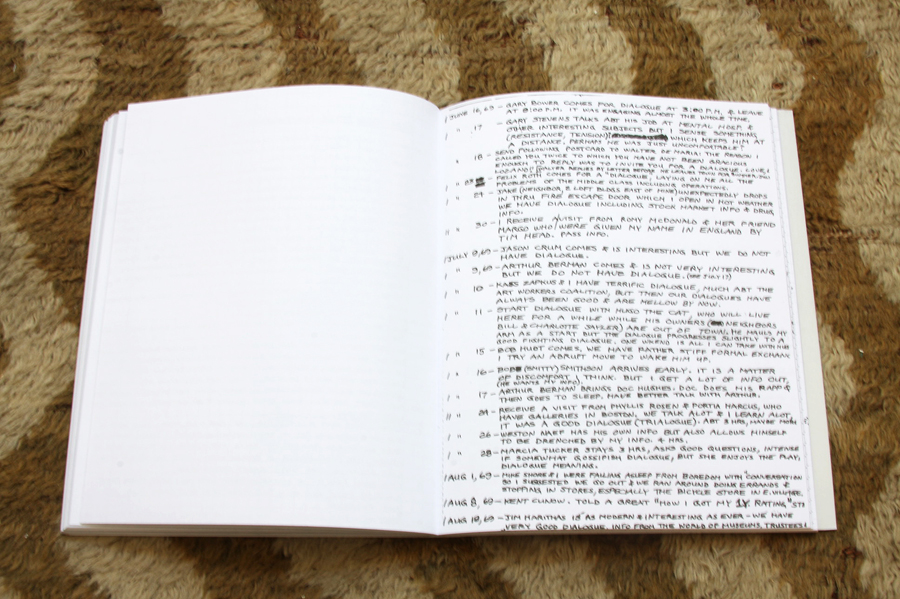 /JUNE 16, 69 – GARY BOWER COMES FOR DIALOGUE AT 3:00 P.M. & LEAVE
AT 8:00 P.M. IT WAS ENGAGING ALMOST THE WHOLE TIME.
/ " 17 – GARY STEVENS TALKS ABT HIS JOB AT MENTAL HOSP. &
OTHER INTERESTING SUBJECTS BUT I SENSE SOMETHING
(RESISTANCE, TENSION) WHICH KEEPS HIM AT
A DISTANCE, PERHAPS HE WAS JUST UNCOMFORTABLE?
" 18 – SEND FOLLOWING POSTCARD TO WALTER DE MARIA: THE REASON I
CALLED YOU TWICE TO WHICH YOU HAVE NOT BEEN GRACIOUS
ENOUGH TO REPLY WAS TO INVITE YOU FOR A DIALOGUE. LOVE, L
LOZANO (WALTER REPLIES BY LETTER BEFORE HE LEAVES TOWN FOR
FELIX ROTH COMES FOR A "DIALOGUE", LAYING ON ME ALL THE
PROBLEMS OF THE MIDDLE CLASS INCLUDING OPERATIONS.
JAKE (NEIGHBOR, 2 LOFT BLDGS EAST OF MINE) UNEXPECTEDLY DROPS
IN THRU FIRE ESCAPE DOOR WHICH I OPEN IN HOT WEATHER
WE HAVE DIALOGUE INCLUDING STOCK MARKET INFO & DRUG
INFO.
/ " 30 – I RECEIVE A VISIT FROM ROMY MCDONALD & HER FRIEND
MARGO WHO WERE GIVEN MY NAME IN ENGLAND BY
TIM HEAD. PASS INFO.
/JULY 9, 69 – JASON CRUM COMES & IS INTERESTING BUT WE DO NOT
HAVE DIALOGUE.
/ " 9, 69 – ARTHUR BERMAN COMES & IS NOT VERY INTERESTING
BUT WE DO NOT HAVE DIALOGUE. (SEE JULY 17)
/ " 10 – ZAPKUS & I HAVE TERRIFIC DIALOGUE, MUCH ABT THE
ART WORKERS COALITION, BUT THEN OUR DIALOGUES HAVE
ALWAYS BEEN GOOD & ARE MELLOW BY NOW.
/ " 11 – START DIALOGUE WITH HUGO THE CAT, WHO WILL LIVE
HERE FOR A WHILE WHILE HIS OWNERS (NEIGHBORS
BILL & CHARLOTTE SAYLER) ARE OUT OF TOWN. HE MAULS MY
ARM AS A START BUT THE DIALOGUE PROGRESSES SLIGHTLY TO A
GOOD FIGHTING DIALOGUE. ONE WKEND IS ALL I CAN TAKE WITH HIM
/ " 15 – BOB HUOT COMES, WE HAVE RATHER STIFF FORMAL EXCHANGE
I TRY AN ABRUPT MOVE TO WAKE HIM UP.
/ " 16 – BOB (SMITTY) SMITHSON ARRIVES EARLY. IT IS A MATTER
OF DISCOMFORT I THINK. BUT I GET A LOT OF INFO OUT,
(HE WANTS MY INFO).
/ " 17 – ARTHUR BERMAN BRINGS DOC HUGHES. DOC DOES HIS RAPP &
THEN GOES TO SLEEP. HAVE BETTER TALK WITH ARTHUR.
/ " 21 – RECEIVE A VISIT FROM PHYLLIS ROSEN & PORTIA HARCUS, WHO
HAVE GALLERIES IN BOSTON. WE TALK ALOT & I LEARN ALOT,
IT WAS A GOOD DIALOGUE (TRIALOGUE). ABT 3 HRS, MAYBE MORE
/ " 26 – WESTON NAEF HAS HIS OWN INFO BUT ALSO ALLOWS HIMSELF
TO BE DRENCHED BY MY INFO. 4 HRS.
/ " 28 – MARCIA TUCKER STAYS 3 HRS, ASKS GOOD QUESTIONS, INTENSE
IF SOMEWHAT GOSSIPISH DIALOGUE, BUT SHE ENJOYS THE PLAY,
DIALOGUE MEANING.
/AUG 1, 69 – MIKE SHORE & I WERE FALLING ASLEEP FROM BOREDOM WITH "CONVERSATION
SO I SUGGESTED WE GO OUT & WE RAN AROUND DOING ERRANDS &
STOPPING IN STORES, ESPECIALLY THE BICYCLE STORE IN E. VILLAGE.
/AUG 8, 69 – KENT CUNOW. TOLD A GREAT "HOW I GOT MY 1Y RATING" ST
/AUG 10, 69 – JIM HARITHAS IS AS MODERN & INTERESTING AS EVER – WE HAVE
VERY GOOD DIALOGUE. INFO FROM THE WORLD OF MUSEUMS, TRUSTEES &